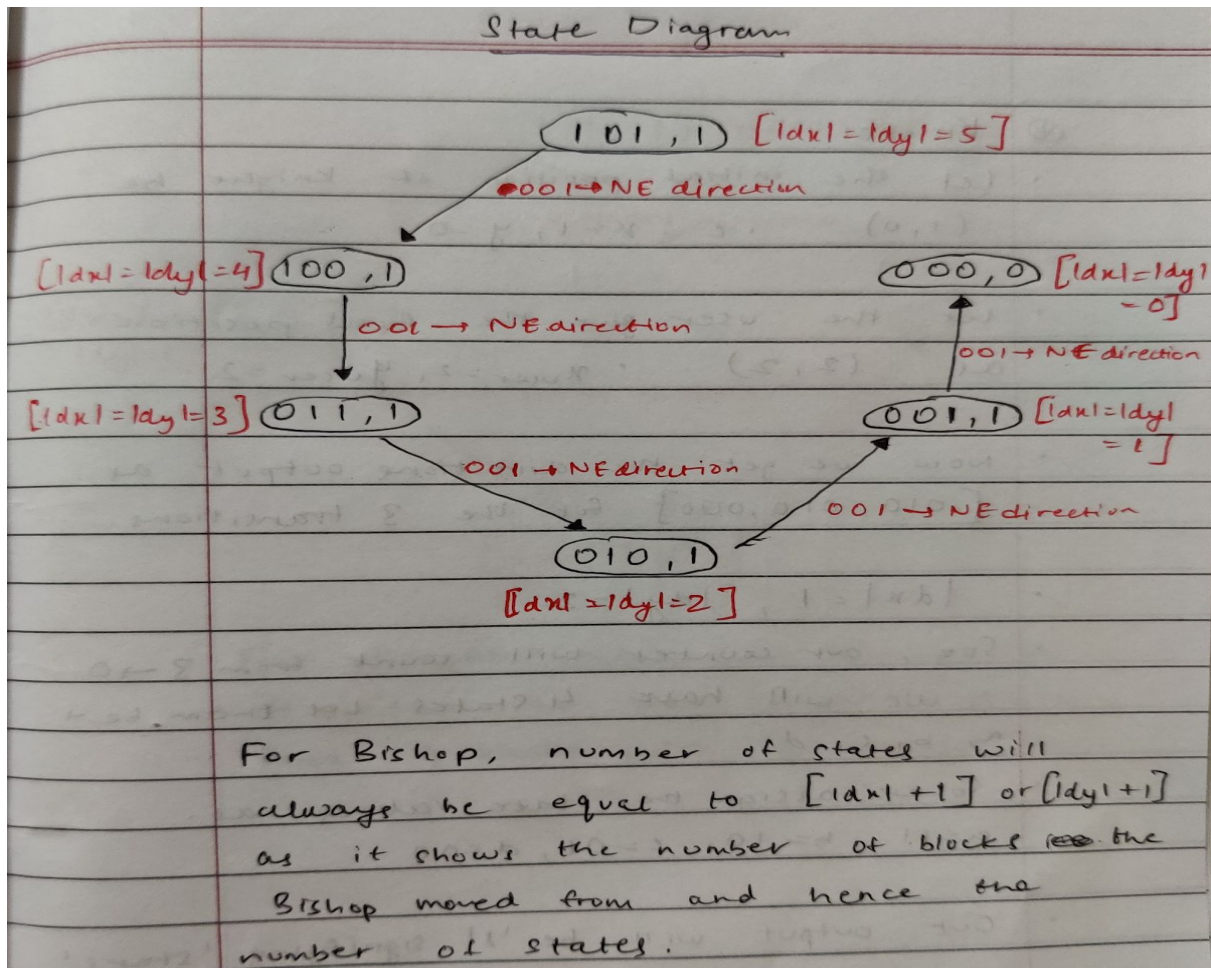 State Diagram
101,1 [|dx| = |dy| = 5]
001→NE direction
[|dx| = |dy| = 4] 100,1
000,0 [|dx|=|dy|
=0]
001 → NE direction
001→ NE direction
[|dx| = |dy|= 3] 011,1
001,1 [|dx|=|dy|
= 1]
001 → NE direction
001 → NE direction
010,1
[|dx| =|dy|=2]
For Bishop, number of states will
always be equal to [|dx| +1] or [|dy| +1]
as it shows the number of blocks the
Bishop moved from and hence the
number of states.